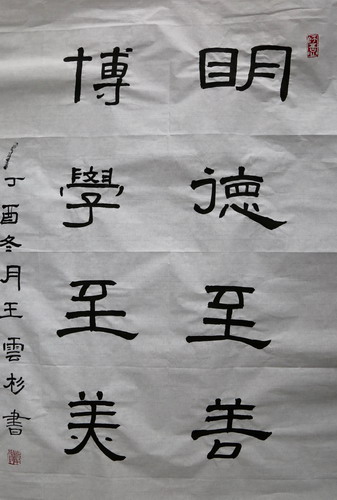 明德至善
博學至美
丁酉冬月王雲杉書